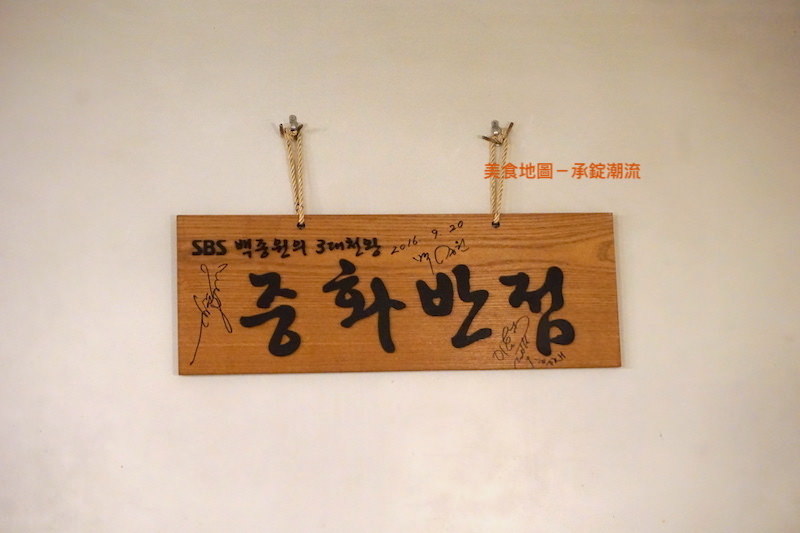 美食地圖－承錠潮流
SBS 백종원의 3대천왕 2016 9 20
중화반점